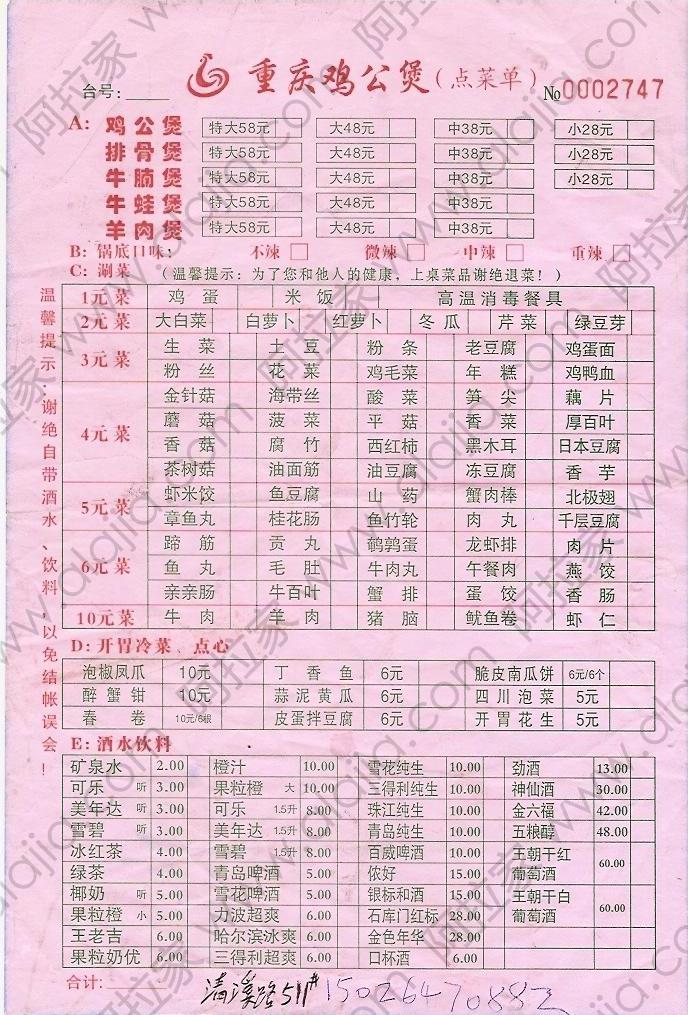 台号:____ 重庆鸡公煲(点菜单) №0002747
A: 鸡公煲 特大58元 大48元 中38元 小28元
排骨煲 特大58元 大48元 中38元 小28元
牛腩煲 特大58元 大48元 中38元 小28元
牛蛙煲 特大58元 大48元 中38元
羊肉煲 特大58元 大48元 中38元
B: 锅底口味: 不辣 微辣 中辣 重辣
C: 涮菜 (温馨提示:为了您和他人的健康,上桌菜品谢绝退菜!)
温馨提示:谢绝自带酒水、饮料,以免结帐误会!
1元菜 鸡蛋 米饭 高温消毒餐具
2元菜 大白菜 白萝卜 红萝卜 冬瓜 芹菜 绿豆芽
3元菜 生菜 土豆 粉条 老豆腐 鸡蛋面
粉丝 花菜 鸡毛菜 年糕 鸡鸭血
4元菜 金针菇 海带丝 酸菜 笋尖 藕片
蘑菇 菠菜 平菇 香菜 厚百叶
香菇 腐竹 西红柿 黑木耳 日本豆腐
茶树菇 油面筋 油豆腐 冻豆腐 香芋
5元菜 虾米饺 鱼豆腐 山药 蟹肉棒 北极翅
章鱼丸 桂花肠 鱼竹轮 肉丸 千层豆腐
6元菜 蹄筋 贡丸 鹌鹑蛋 龙虾排 肉片
鱼丸 毛肚 牛肉丸 午餐肉 燕饺
亲亲肠 牛百叶 蟹排 蛋饺 香肠
10元菜 牛肉 羊肉 猪脑 鱿鱼卷 虾仁
D: 开胃冷菜、点心
泡椒凤爪 10元 丁香鱼 6元 脆皮南瓜饼 6元/6个
醉蟹钳 10元 蒜泥黄瓜 6元 四川泡菜 5元
春卷 10元/6根 皮蛋拌豆腐 6元 开胃花生 5元
E: 酒水饮料
矿泉水 2.00 橙汁 10.00 雪花纯生 10.00 劲酒 13.00
可乐 听 3.00 果粒橙 大 10.00 三得利纯生 10.00 神仙酒 30.00
美年达 听 3.00 可乐 1.5升 8.00 珠江纯生 10.00 金六福 42.00
雪碧 听 3.00 美年达 1.5升 8.00 青岛纯生 10.00 五粮醇 48.00
冰红茶 4.00 雪碧 1.5升 8.00 百威啤酒 10.00 王朝干红葡萄酒 60.00
绿茶 4.00 青岛啤酒 5.00 侬好 15.00
椰奶 听 5.00 雪花啤酒 5.00 银标和酒 15.00 王朝干白葡萄酒 60.00
果粒橙 小 5.00 力波超爽 6.00 石库门红标 28.00
王老吉 6.00 哈尔滨冰爽 6.00 金色年华 28.00
果粒奶优 6.00 三得利超爽 6.00 口杯酒 6.00
合计: 清溪路511# 15026470882
阿拉家 www.alajia.com